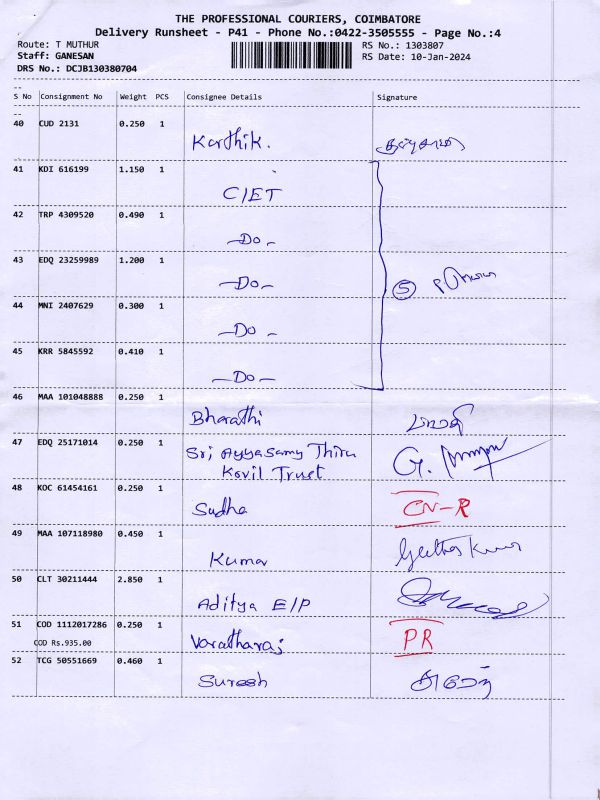 THE PROFESSIONAL COURIERS, COIMBATORE
Delivery Runsheet - P41 - Phone No.:0422-3505555 - Page No.:4
Route: T MUTHUR RS No.: 1303807
Staff: GANESAN RS Date: 10-Jan-2024
DRS No.: DCJB130380704
S No Consignment No Weight PCS Consignee Details Signature
40 CUD 2131 0.250 1
Karthik.
41 KDI 616199 1.150 1
CIET
42 TRP 4309520 0.490 1
-Do-
43 EDQ 23259989 1.200 1
-Do-
5
44 MNI 2407629 0.300 1
-Do-
45 KRR 5845592 0.410 1
-Do-
46 MAA 101048888 0.250 1
Bharathi பாரதி
47 EDQ 25171014 0.250 1
Sri Ayyasamy Thiru
Kovil Trust
G.
48 KOC 61454161 0.250 1
Sudha CN-R
49 MAA 107118980 0.450 1
Kumar
50 CLT 30211444 2.850 1
Aditya E/P
51 COD 1112017286 0.250 1
COD Rs.935.00
Varatharaj PR
52 TCG 50551669 0.460 1
Suresh சுரேஷ்